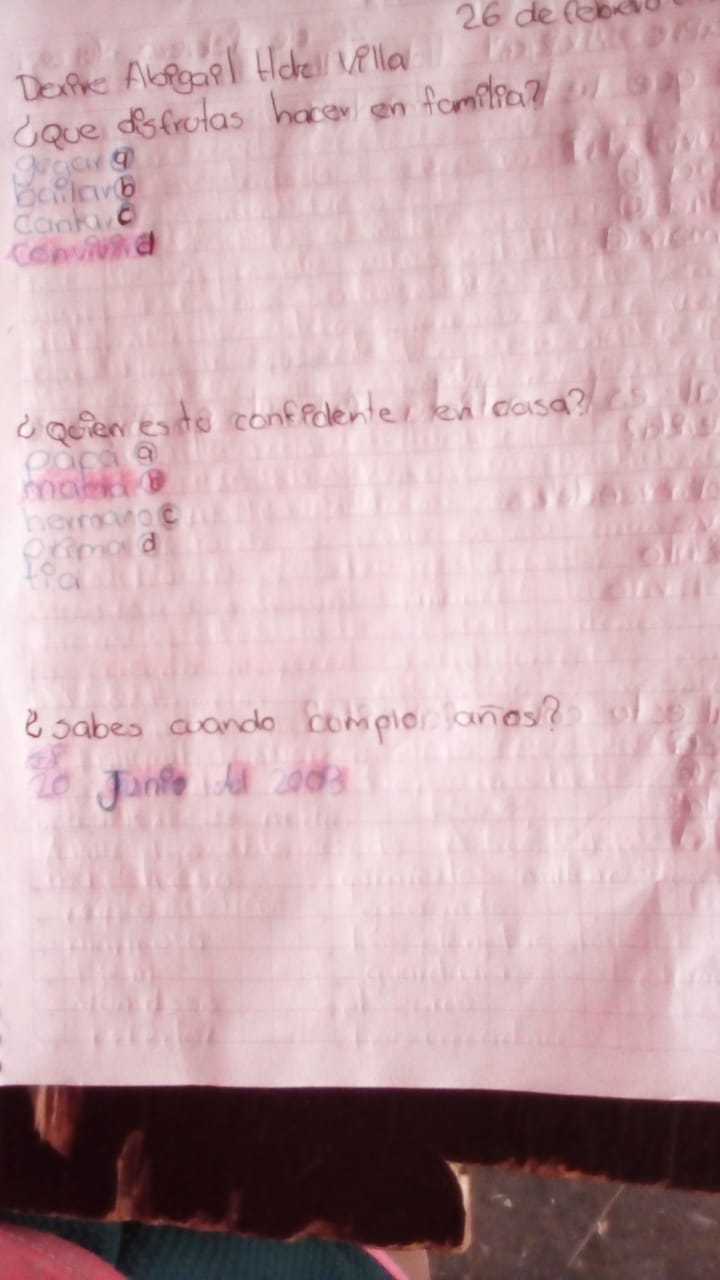 26 de febrero
Dexire Abigail Hdz Villa
¿Que disfrutas hacer en familia?
gugar a
bailar b
Cantar c
convivir d
¿Quien es tu confidente, en casa?
papa a
mama b
hermano c
prima d
tia
¿sabes cuando cumplo años?
si
20 Junio del 2003